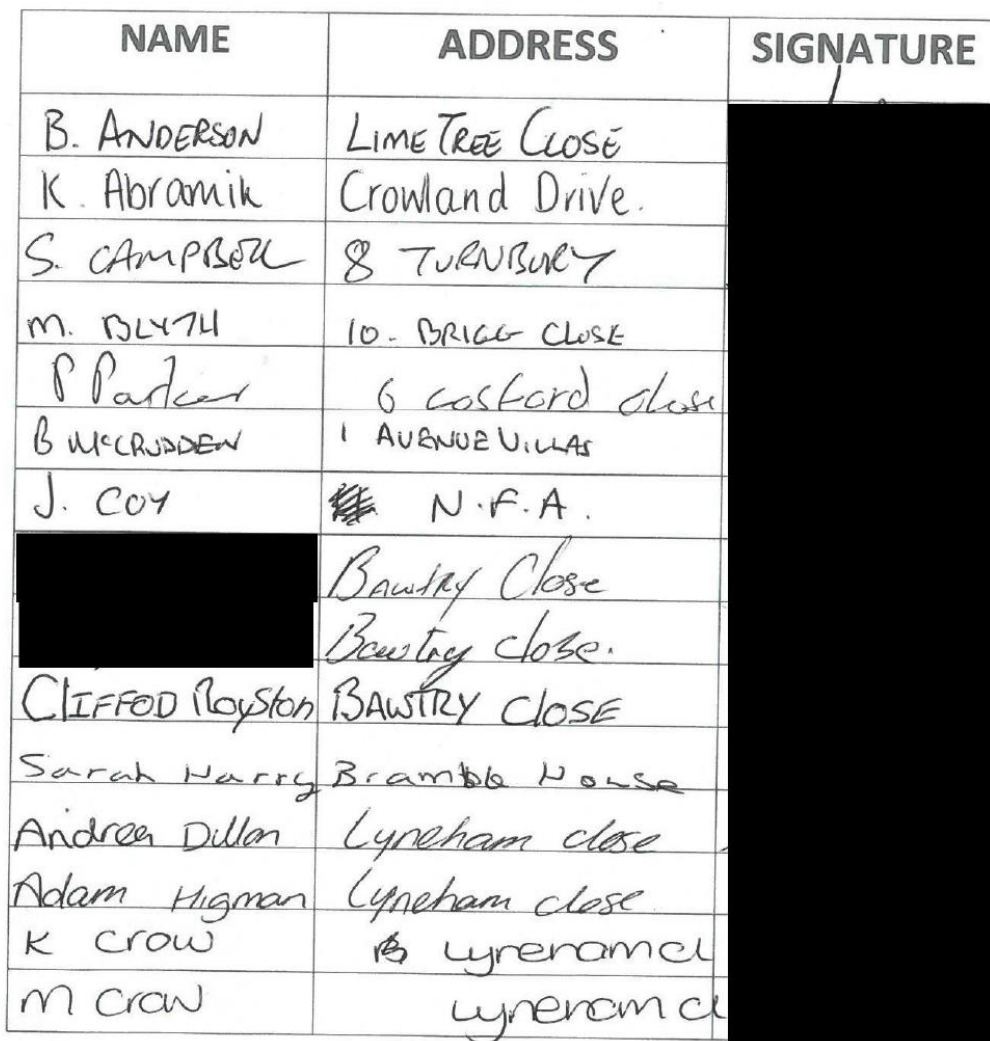 NAME ADDRESS SIGNATURE
B. ANDERSON LIME TREE CLOSE
K. Abramik Crowland Drive.
S. CAMPBELL 8 TURNBURY
M. BLYTH 10. BRIGG CLOSE
P Parker 6 cosford close
B McCRUDDEN 1 AVENUE VILLAS
J. COY N.F.A.
Bawtry Close
Bawtry close.
CLIFFOD Royston BAWTRY ClOSE
Sarah Harry Bramble House
Andrea Dillon Lyneham close
Adam Higman Lyneham close
K crow lynenam cl
M crow lynenam cl